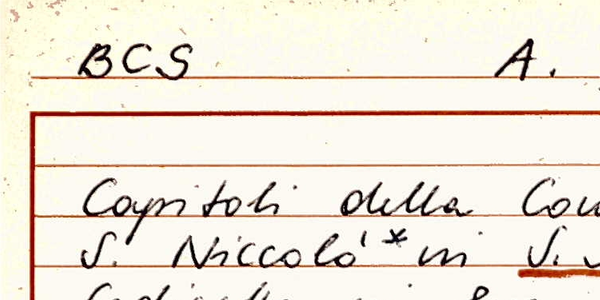 BCS A.
Capitoli della Com
S. Niccolò * in S.